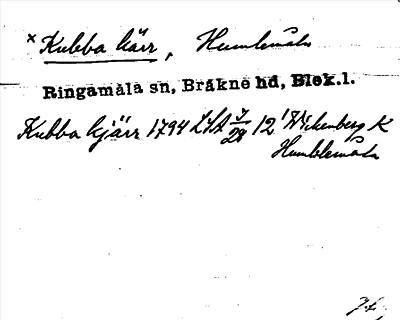 × Kubba kärr, Humlemåla
Ringamåla sn, Bräkne hd, Blek.l.
Kubba kjärr 1794 LSA 12' Wickenberg K
Humblemåla